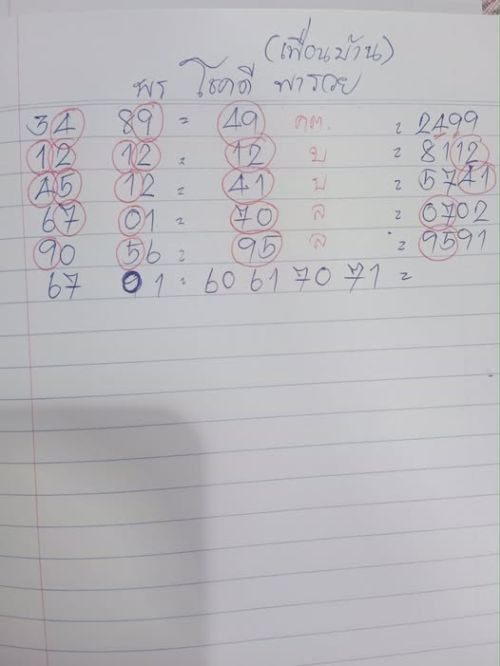 (เพื่อนบ้าน)
พร โชคดี พารวย
34 89 = 49 คต. = 2499
12 12 = 12 บ = 8112
45 12 = 41 บ = 5741
67 01 = 70 ล = 0702
90 56 = 95 ล = 9591
67 01 = 60 61 70 71 =